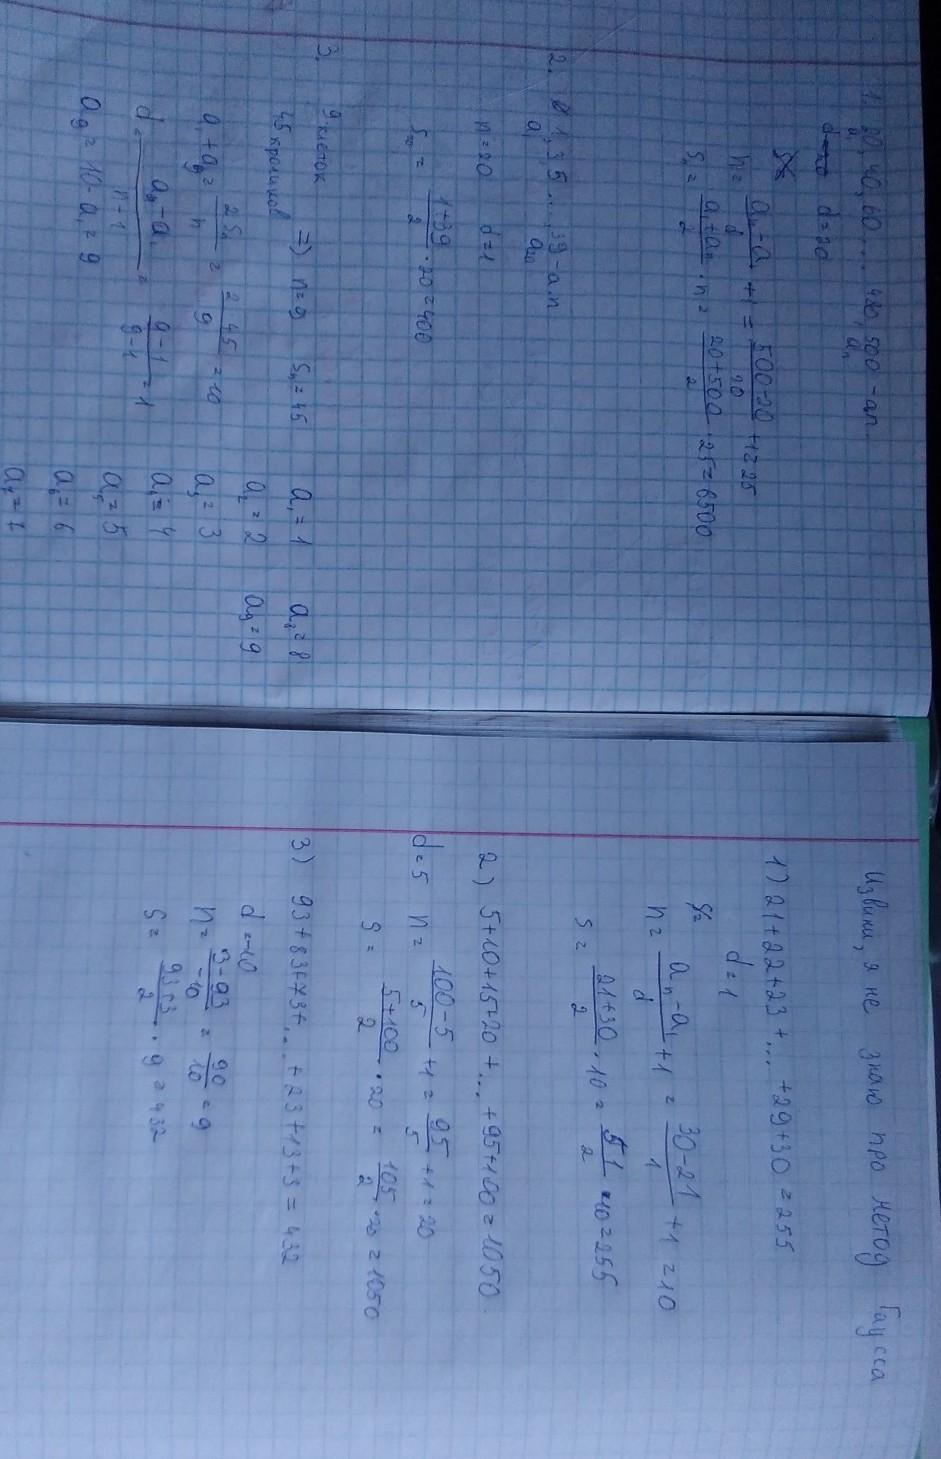 1. 20, 40, 60 ... 480, 500 - ап.
a₁ aₙ
d=20 d=20
n = (aₙ - a₁)/d + 1 = (500-20)/20 + 1 = 25
Sₙ = (a₁+aₙ)/2 · n = (20+500)/2 · 25 = 6500
2. 1, 3, 5 ... 39 - а.п
a₁ a₂₀
n = 20 d = 1
S₂₀ = (1+39)/2 · 20 = 400
3. 9 клеток
45 кроликов => n = 9 Sₙ = 45 a₁ = 1 a₈ = 8
a₂ = 2 a₉ = 9
a₁ + a₉ = 2Sₙ/n = 2·45/9 = 10 a₃ = 3
d = (aₙ - a₁)/(n-1) = (9-1)/(9-1) = 1 a₄ = 4
a₉ = 10 - a₁ = 9 a₅ = 5
a₆ = 6
Извини, я не знаю про метод Гаусса
1) 21+22+23+ ... +29+30 = 255
d = 1
S =
n = (aₙ - a₁)/d + 1 = (30-21)/1 + 1 = 10
S = (21+30)/2 · 10 = 51/2 · 10 = 255
2) 5+10+15+20+ ... +95+100 = 1050.
d = 5 n = (100-5)/5 + 1 = 95/5 + 1 = 20
S = (5+100)/2 · 20 = 105/2 · 20 = 1050
3) 93+83+73+ ... +23+13+3 = 432
d = -10
n = (3-93)/-10 = 90/10 = 9
S = (93+3)/2 · 9 = 432